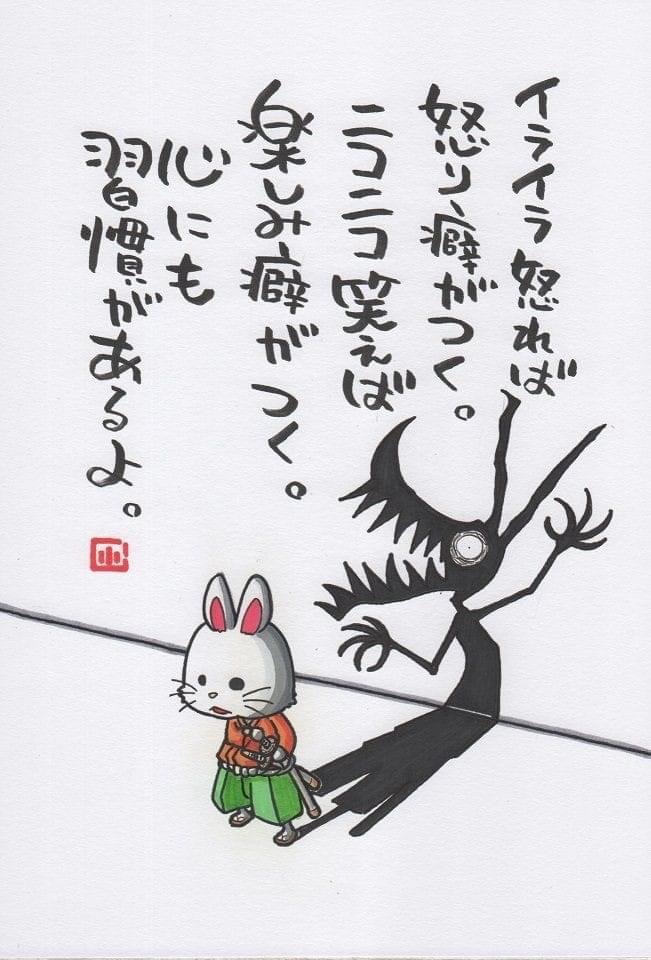 イライラ怒れば
怒り癖がつく。
ニコニコ笑えば
楽しみ癖がつく。
心にも
習慣があるよ。